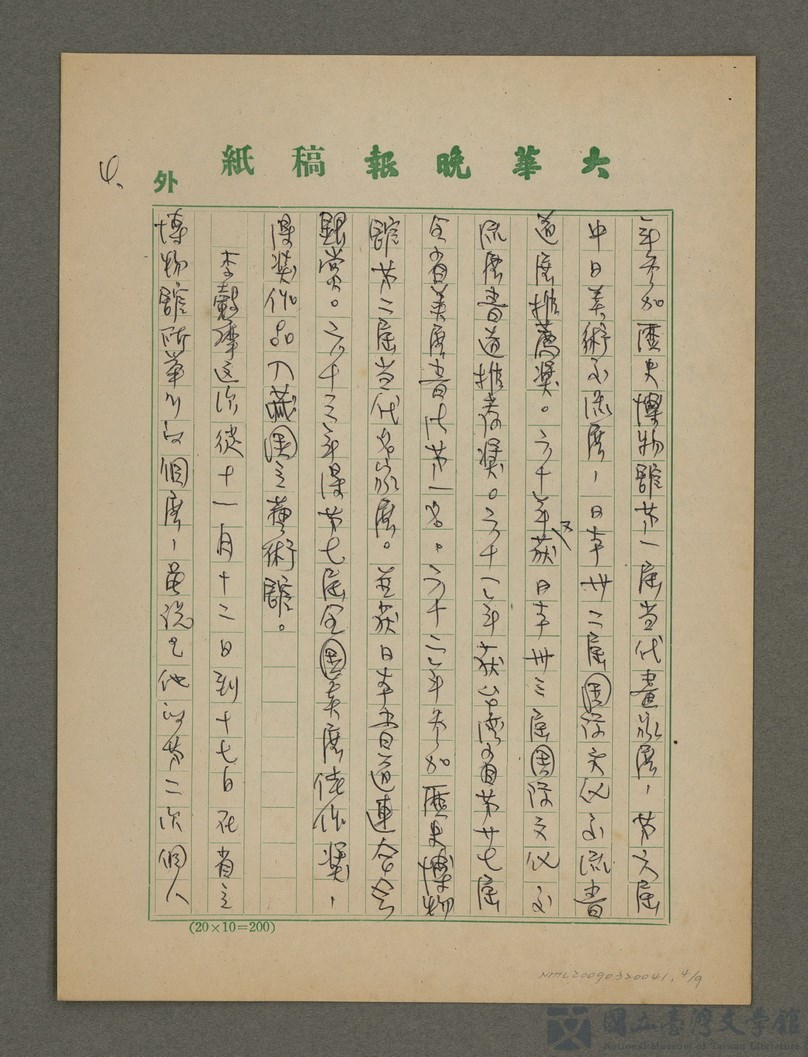 大華晚報稿紙
外
4.
年參加歷史博物館第一屆當代畫家展,第六屆
中日美術交流展,日本卅二屆國際文化交流書
道展推薦獎。六十年又获日本卅三屆國際文化交
流展書道推荐獎。六十一年获台灣省第廿七屆
全省美展書法第一名。六十二年參加歷史博物
館第二屆當代名家展。並获日本書道連合会
銀賞。六十三年得第七屆全國美展佳作獎,
得獎作品入藏國立藝術館。
李轂摩這次從十一月十二日到十七日在省立
博物館所舉行的個展,虽說是他的第二次個人
(20×10=200)
NMTL20090320041, 4/9
國立臺灣文學館
National Museum of Taiwan Literature